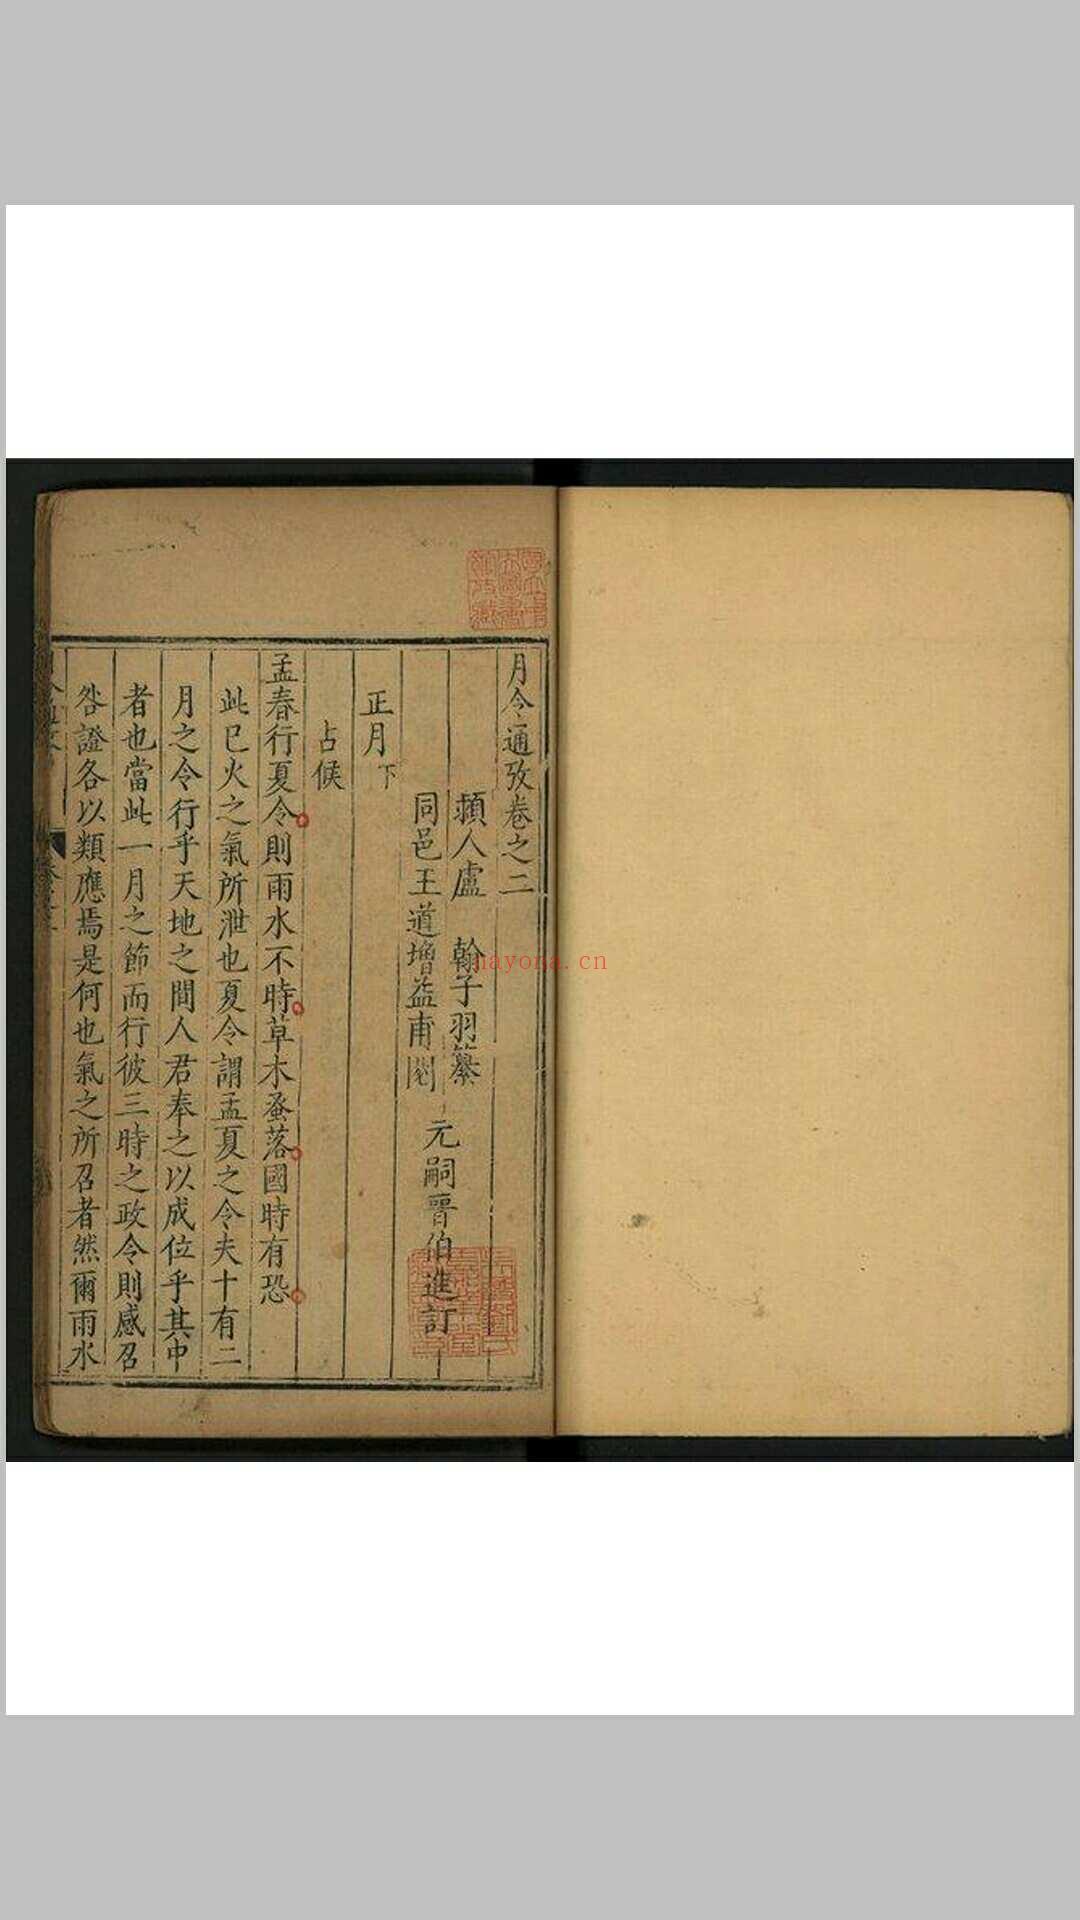 月令通攷卷之二
頴人盧　翰子羽纂
同邑王道增益甫閱
元嗣晉伯進訂
正月下
占候
孟春行夏令則雨水不時草木蚤落國時有恐
此巳火之氣所泄也夏令謂孟夏之令夫十有二
月之令行乎天地之間人君奉之以成位乎其中
者也當此一月之節而行彼三時之政令則感召
咎證各以類應焉是何也氣之所召者然爾雨水
nayona.cn